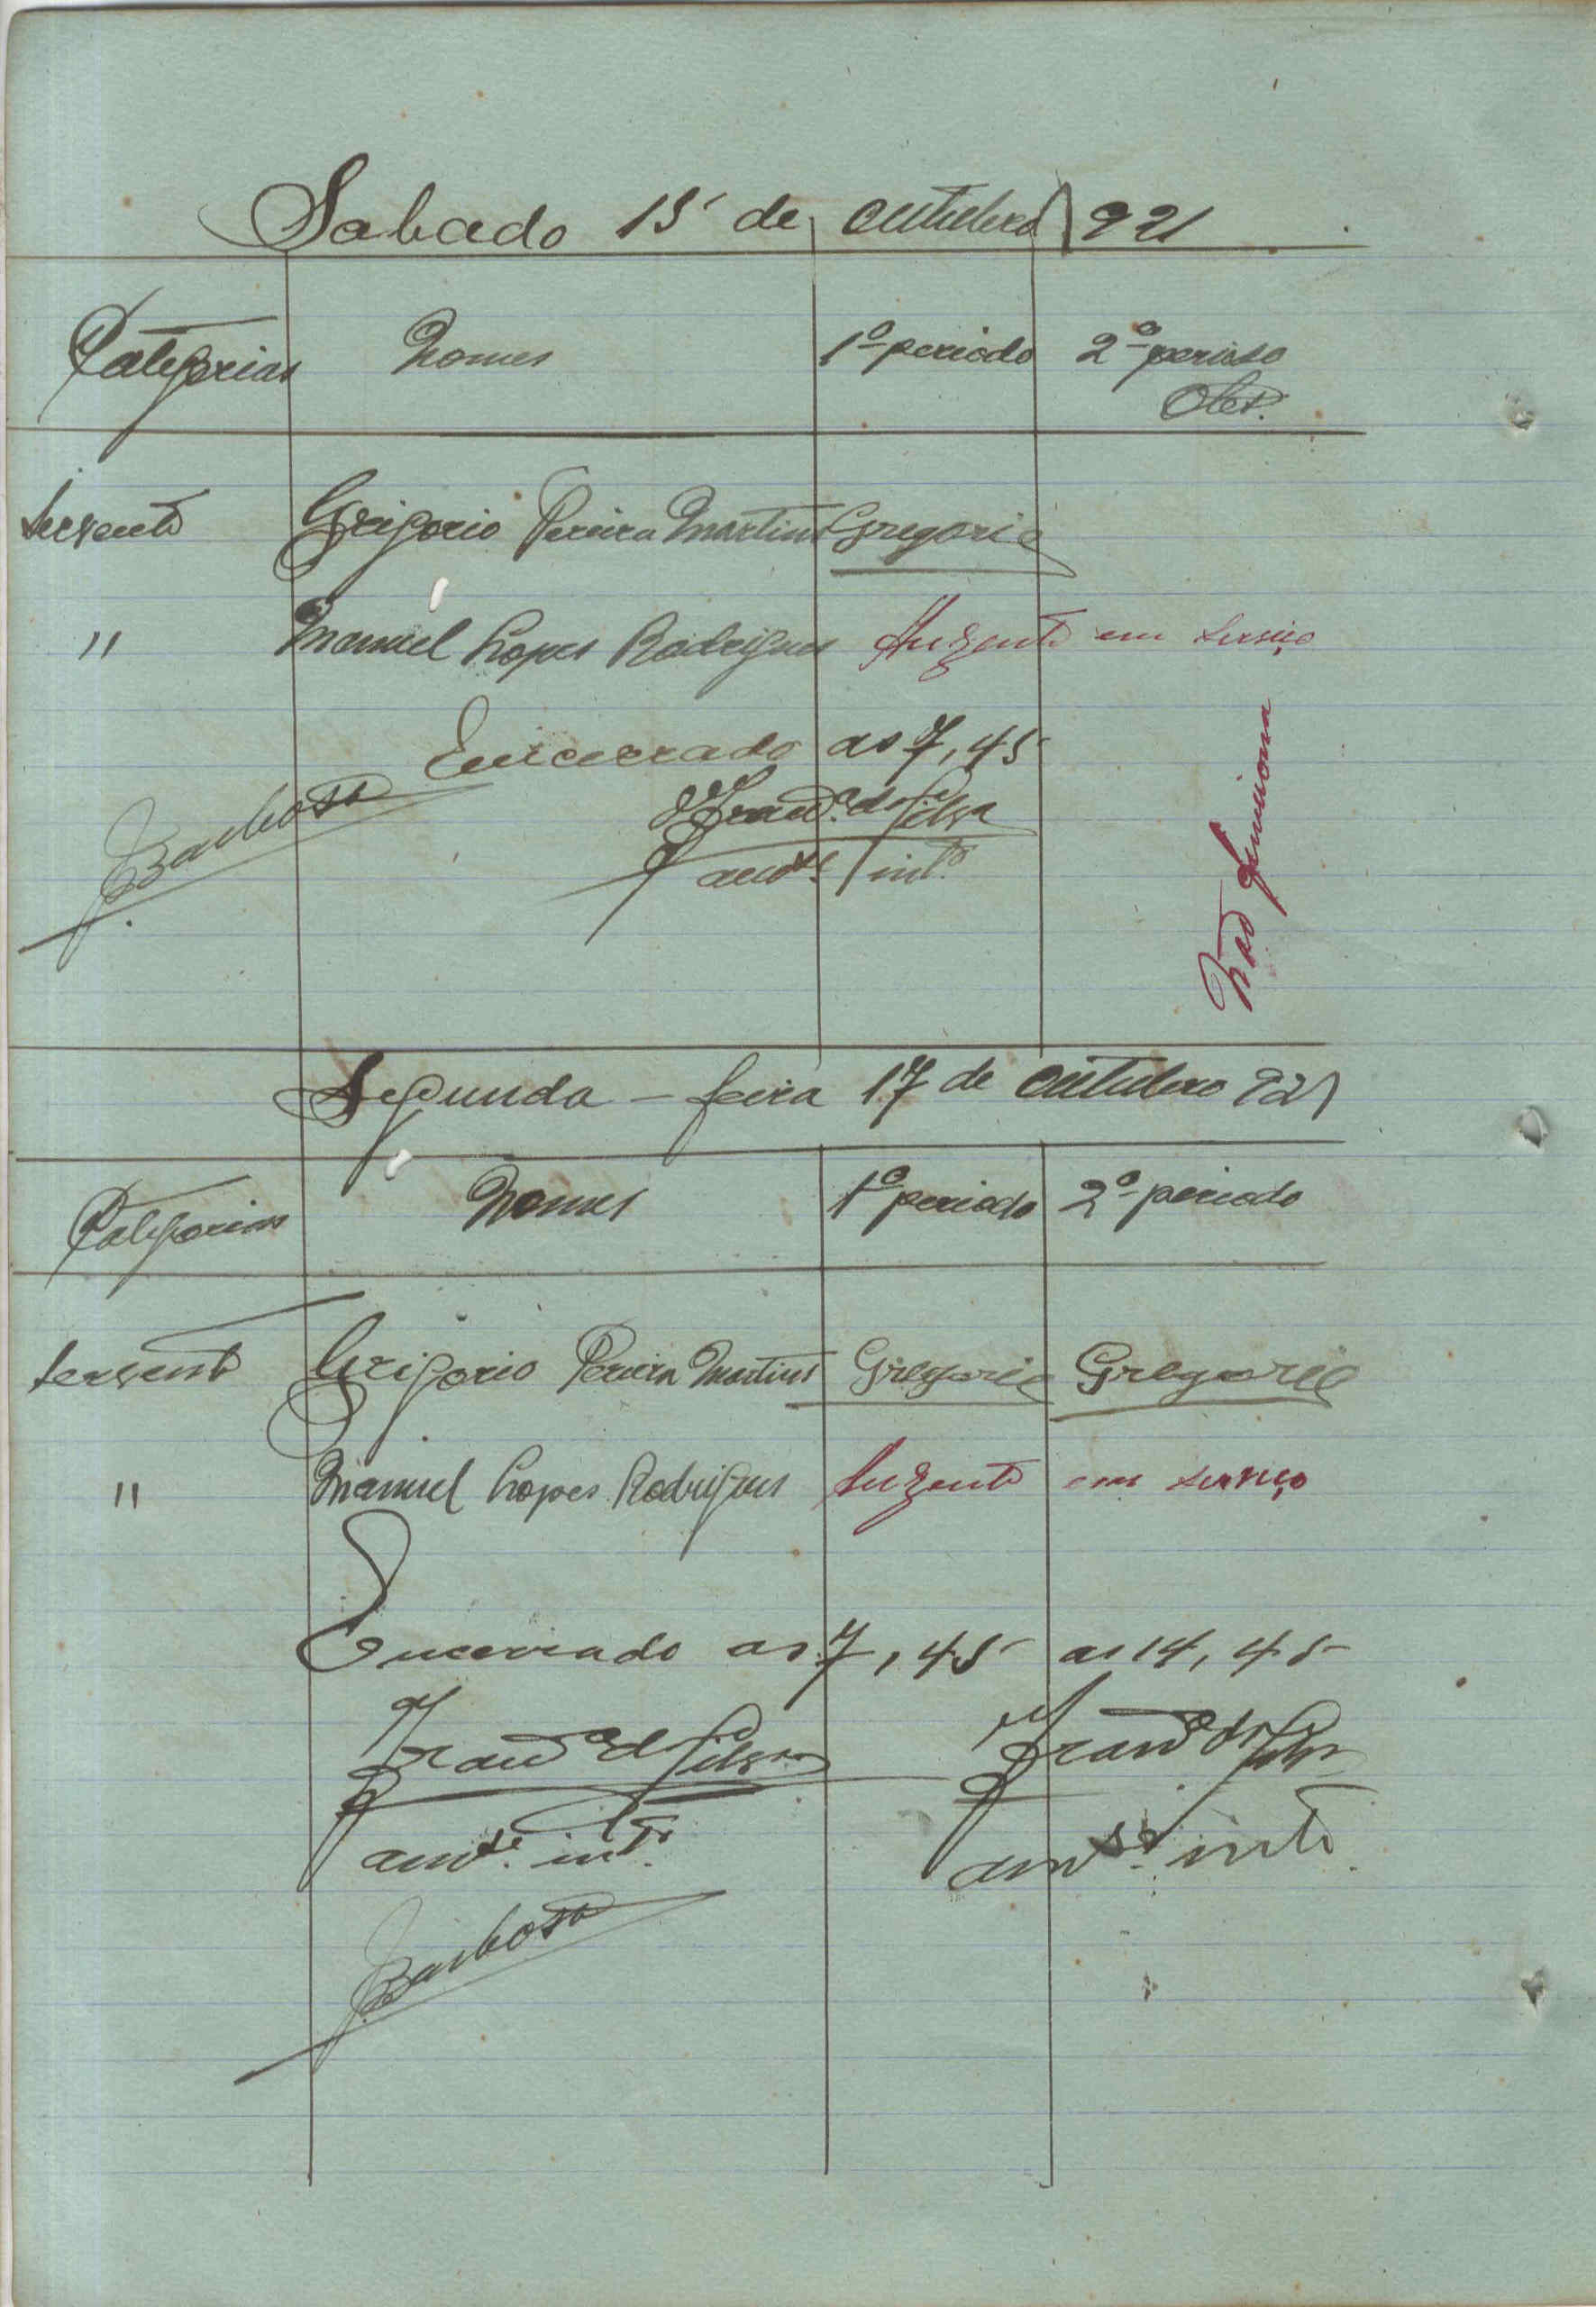 Sabado 15 de outubro 921
Categorias Nomes 1º periodo 2º periodo
Obs.
Servente Grigorio Pereira Martins Gregorio
" Manuel Lopes Rodrigues Auzente em serviço
Encerrado as 7,45
Barbosa Franco da Silva
int.º
Não funciona
Segunda-feira 17 de outubro 921
Categorias Nomes 1º periodo 2º periodo
Servente Grigorio Pereira Martins Gregorio Gregorio
" Manuel Lopes Rodrigues Auzente em serviço
Encerrado as 7,45 as 14,45
Silva Silva
int.º intº
Barbosa